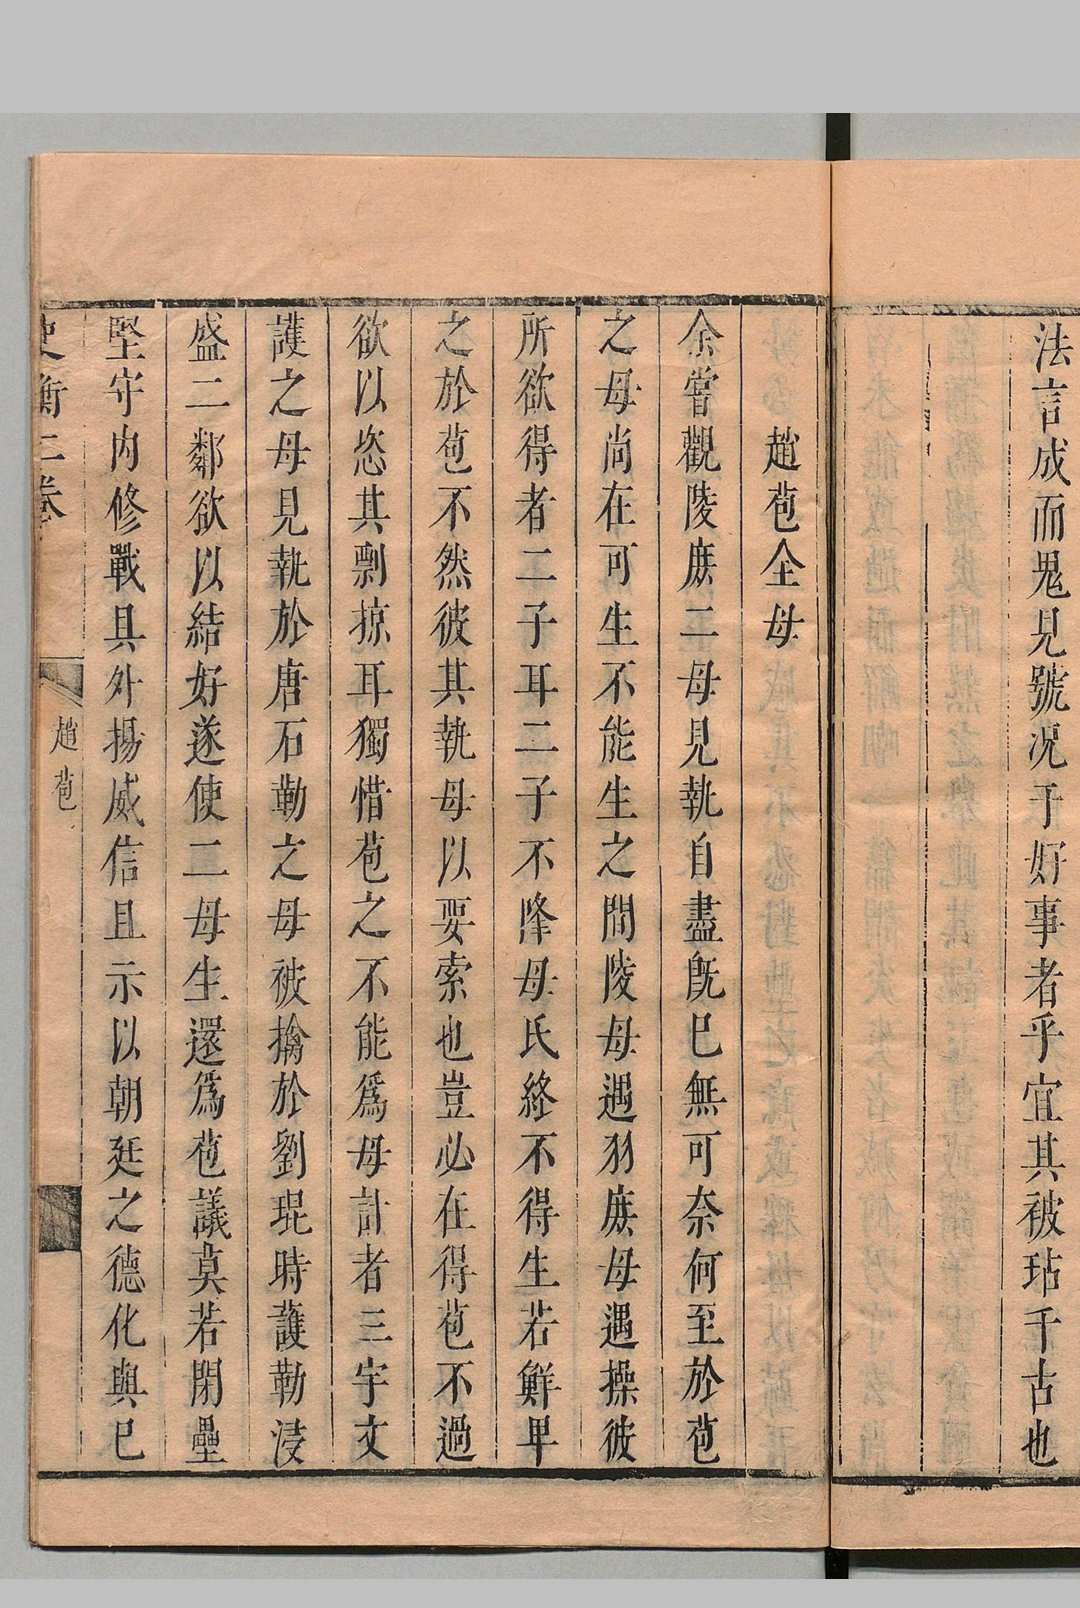 法言成而鬼見號况于好事者乎宜其被玷千古也
趙苞全母
余嘗觀陵庶二母見執自盡旣已無可奈何至於苞
之母尚在可生不能生之間陵母遇羽庶母遇操彼
所欲得者二子耳二子不降母氏終不得生若鮮卑
之於苞不然彼其執母以要索也豈必在得苞不過
欲以恣其剽掠耳獨惜苞之不能爲母計者三宇文
護之母見執於唐石勒之母被擒於劉琨時護勒浸
盛二鄰欲以結好遂使二母生還爲苞議莫若閉壘
堅守内修戰具外揚威信且示以朝廷之德化與已
史衡二卷
趙苞